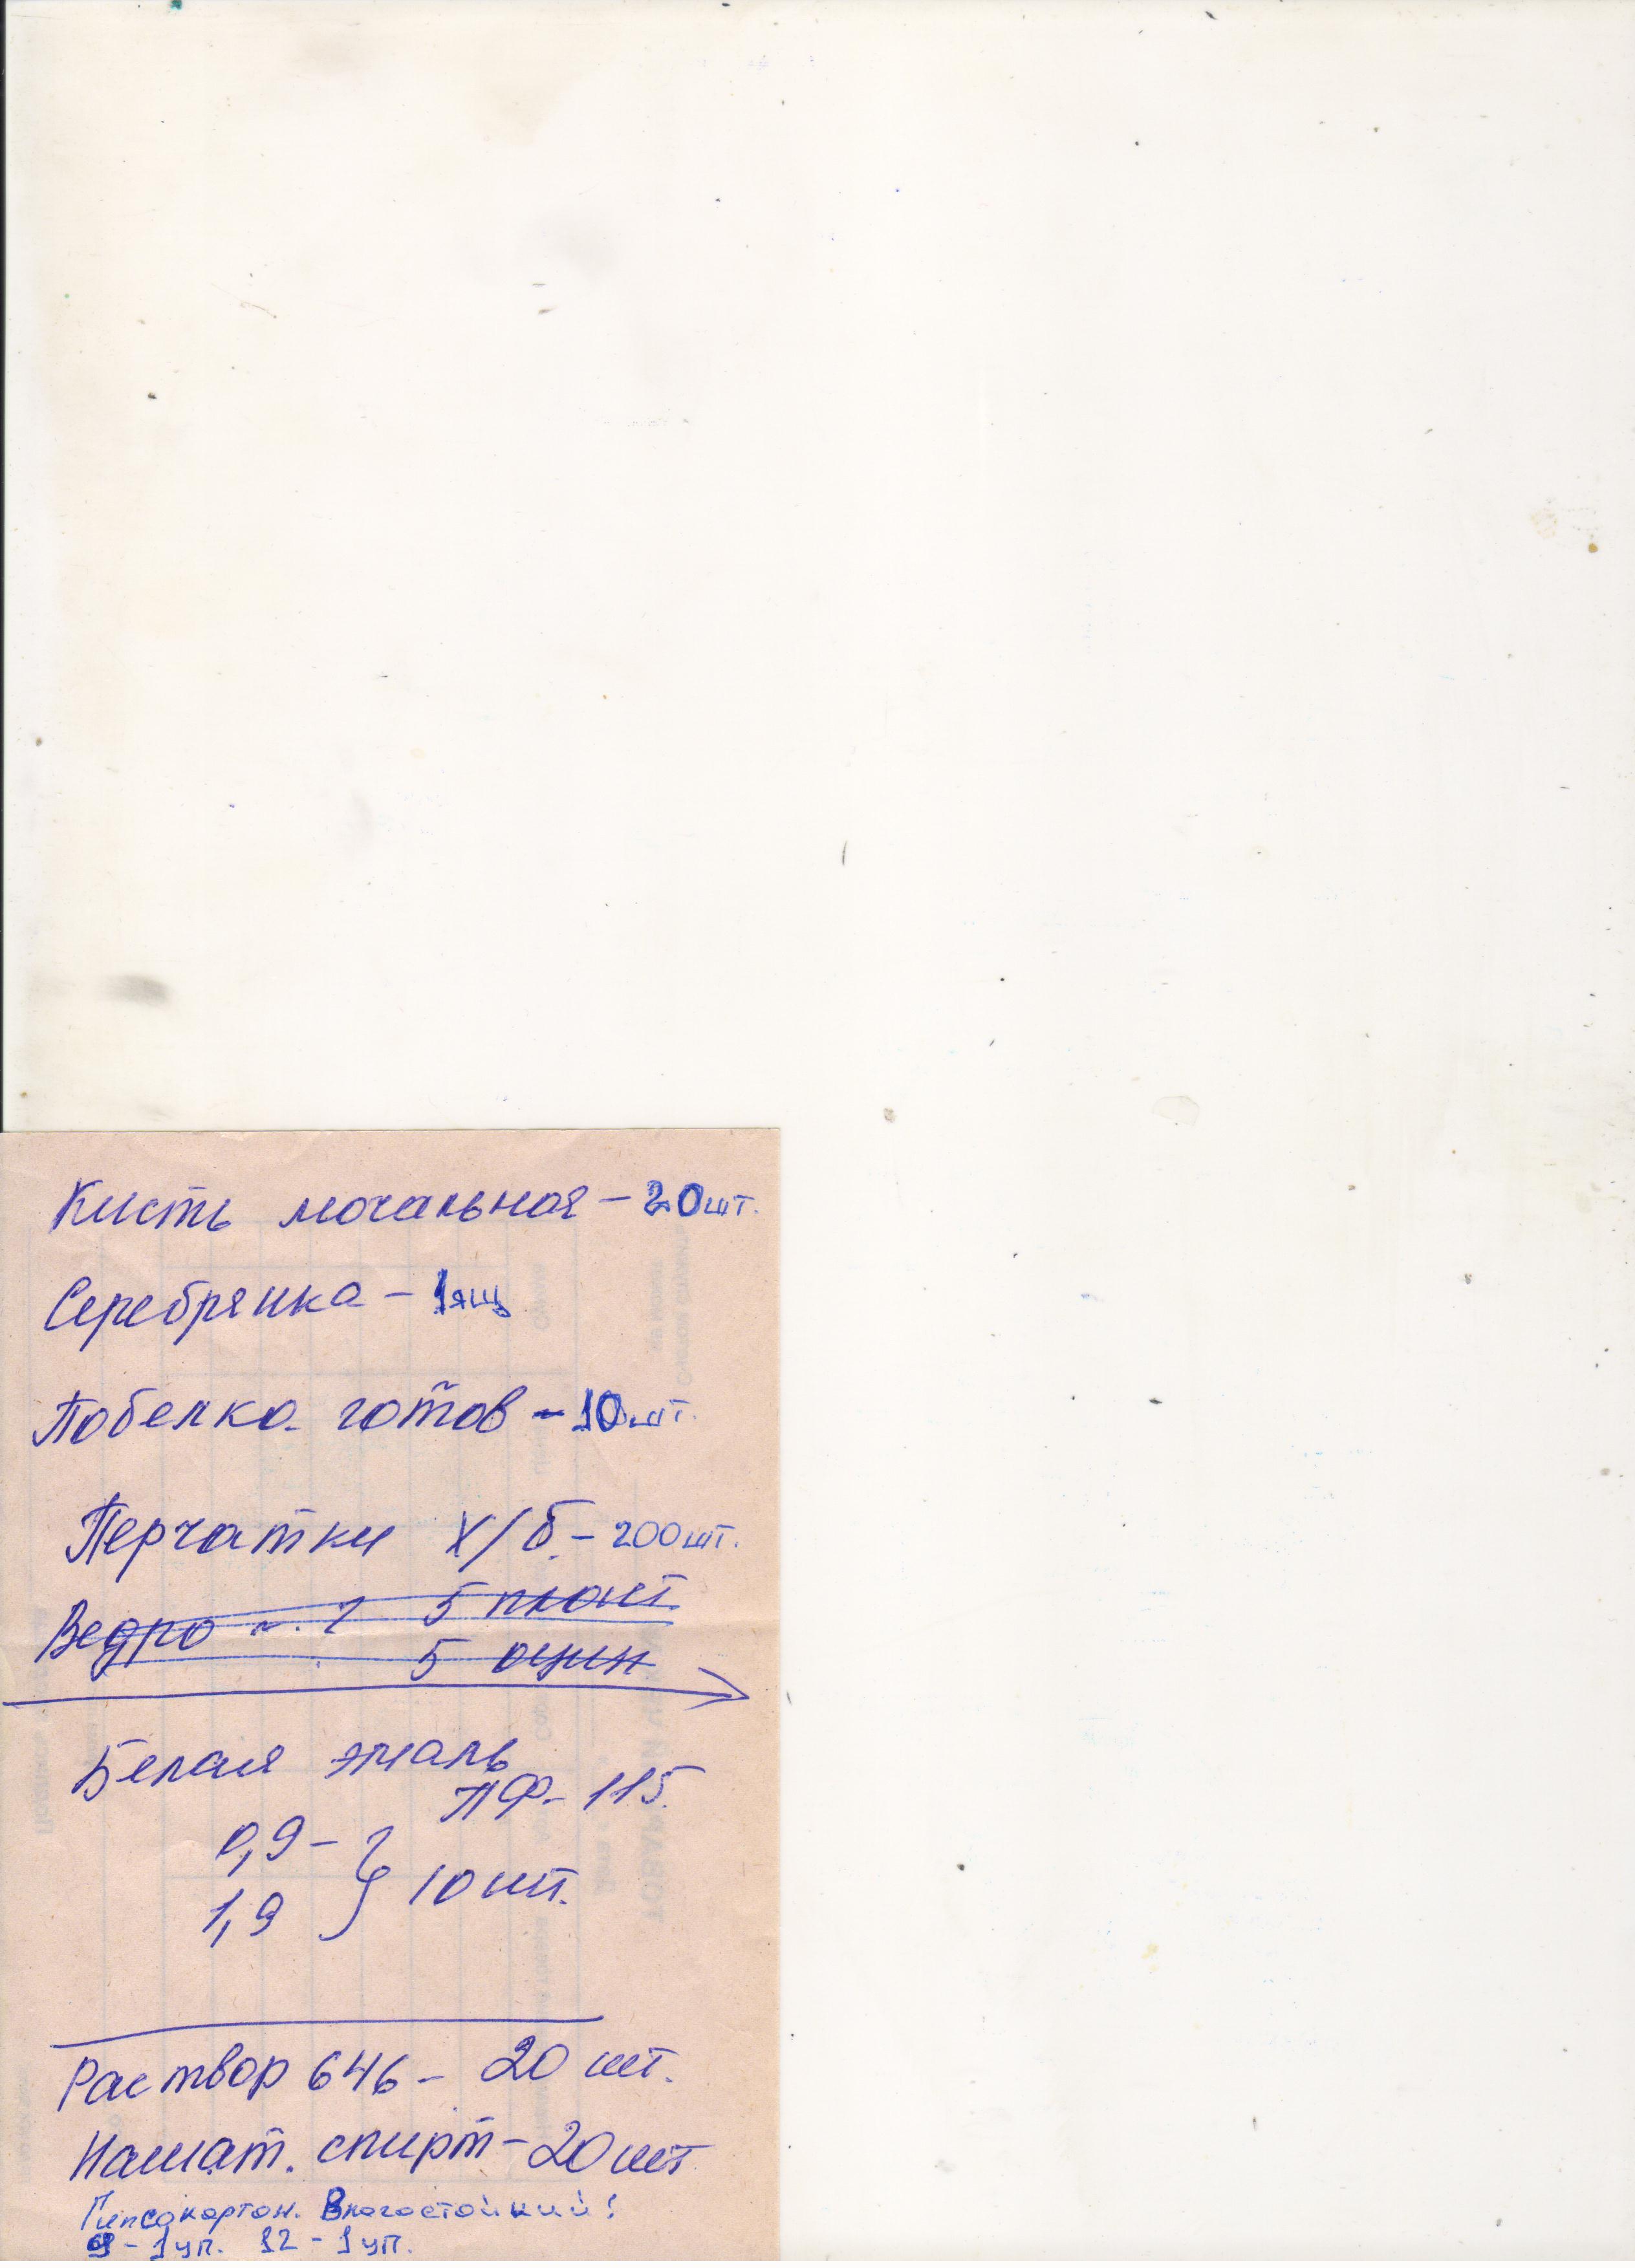 Кисть мочальная - 20шт.
Серебрянка - 1ящ
Побелка готов - 10шт.
Перчатки х/б. - 200шт.
Ведро 5 пласт.
5 оцин
Белая эмаль
ПФ-115.
0,9 -
1,9 } 10 шт.
Раствор 646 - 20 шт.
Нашат. спирт - 20 шт
Гипсокартон. Влагостойкий!
9 - 1 уп. 12 - 1 уп.